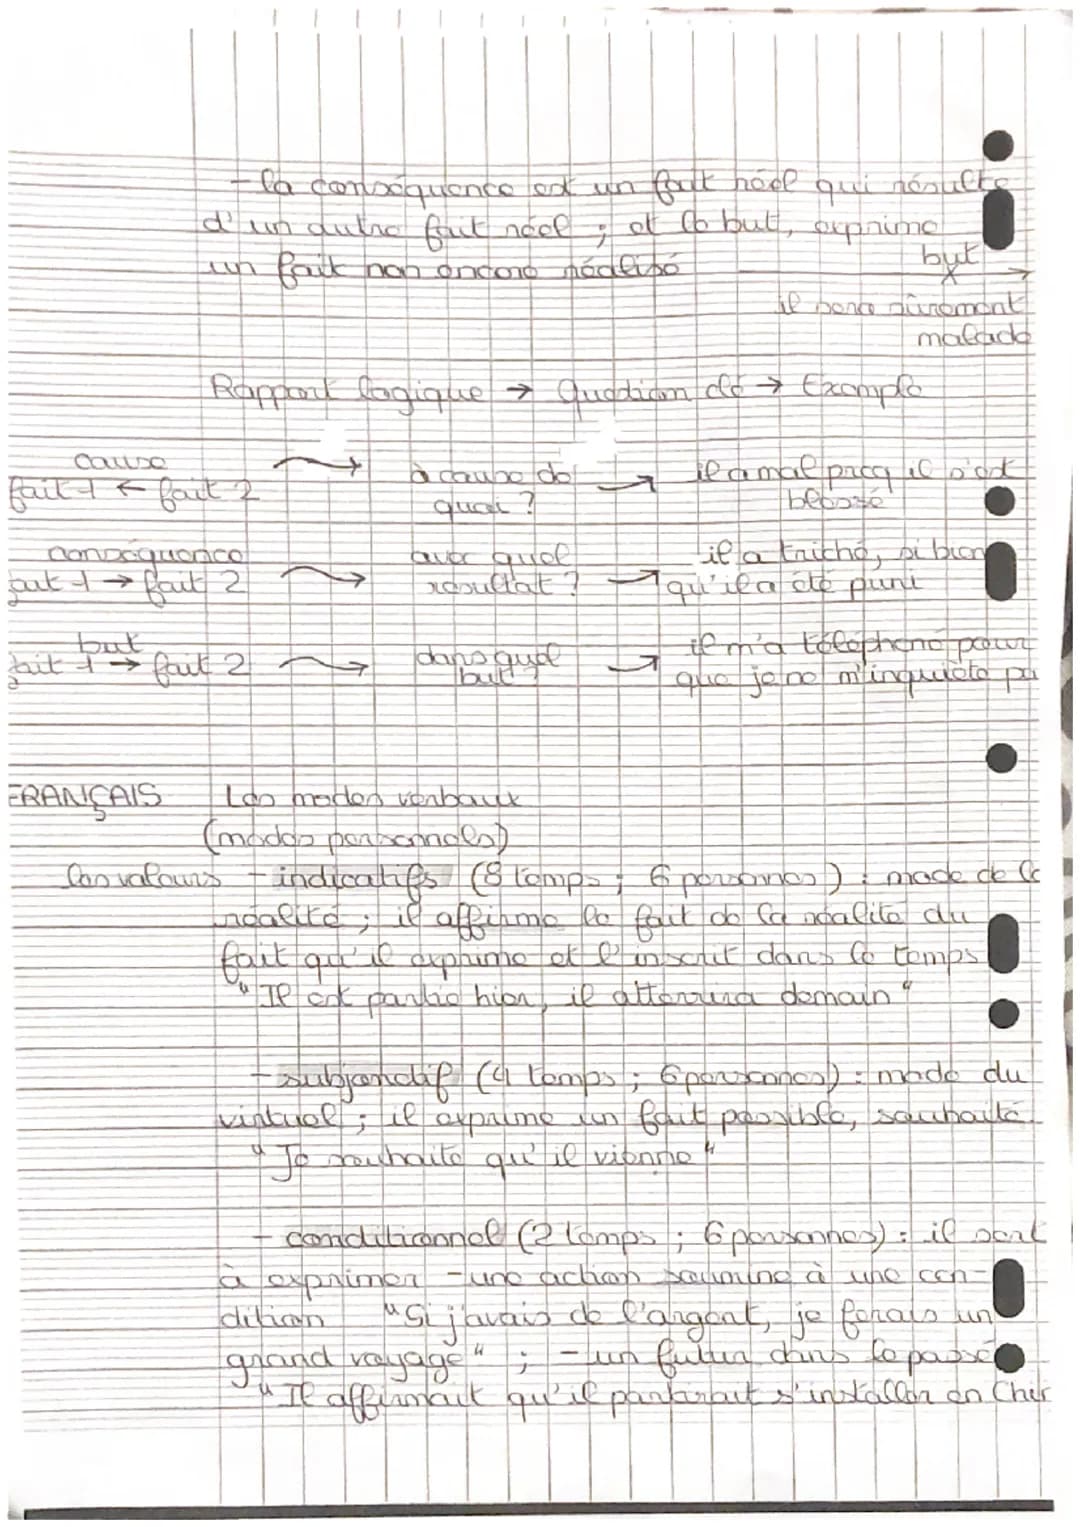 - la conséquence est un fait réel qui résulte
d'un autre fait réel ; et le but, exprime
un fait non encore réalisé
but
il sera sûrement
malade
Rapport logique → Question clé → Exemple
cause
fait 1 ← fait 2
à cause de
quoi ?
il a mal parcq il s'est
blessé
conséquence
fait 1 → fait 2
avec quel
résultat ?
il a triché, si bien
qu'il a été puni
but
fait 1 → fait 2
dans quel
but ?
il m'a téléphoné pour
que je ne m'inquiète pa
FRANÇAIS Les modes verbaux
(modes personnels)
les valeurs - indicatifs (8 temps ; 6 personnes) : mode de la
réalité ; il affirme le fait de la réalité du
fait qu'il exprime et l'inscrit dans le temps
" Il est partie hier, il atterrira demain "
- subjonctif (4 temps ; 6 personnes) : mode du
virtuel ; il exprime un fait possible, souhaité.
" Je souhaite qu'il vienne "
- conditionnel (2 temps ; 6 personnes) : il sert
à exprimer - une action soumise à une con-
dition "Si j'avais de l'argent, je ferais un
grand voyage" ; - un futur dans le passé
" Il affirmait qu'il partirait s'installer en Chin